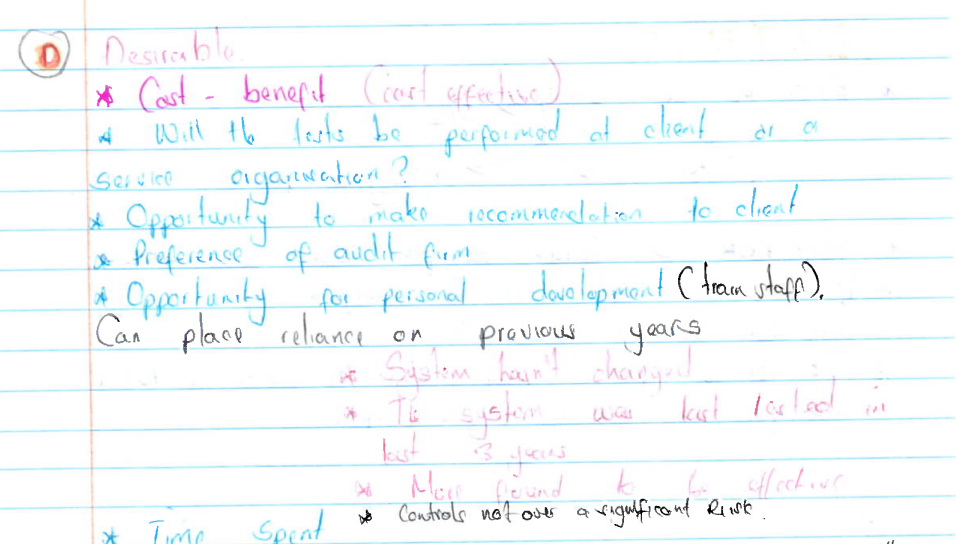 D Desirable
* Cost - benefit (cost effective)
* Will the tests be performed at client or a
service organisation?
* Opportunity to make recommendation to client
* Preference of audit firm
* Opportunity for personal development (train staff).
Can place reliance on previous years
* System hasn't changed
* The system was last tested in
last 3 years
* More found to be effective
* Controls not over a significant Risk.
* Time Spent